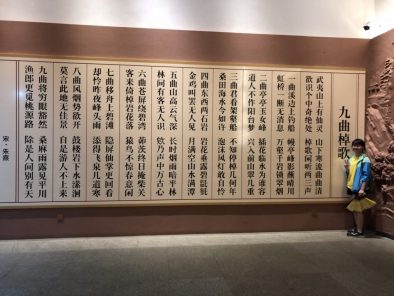 九曲棹歌
武夷山上有仙灵 山下寒流曲曲清
欲识个中奇绝处 棹歌闲听两三声
一曲溪边上钓船 幔亭峰影蘸晴川
虹桥一断无消息 万壑千岩锁翠烟
二曲亭亭玉女峰 插花临水为谁容
道人不作阳台梦 兴入前山翠几重
三曲君看架壑船 不知停棹几何年
桑田海水今如许 泡沫风灯敢自怜
四曲东西两石岩 岩花垂露碧
金鸡叫罢无人见 月满空山水满潭
五曲山高云气深 长时烟雨暗平林
林间有客无人识 欸乃声中万古心
六曲苍屏绕碧湾 茆茨终日掩柴关
客来倚棹岩花落 猿鸟不惊春意闲
七曲移舟上碧滩 隐屏仙掌更回看
却怜昨夜峰头雨 添得飞泉几道寒
八曲风烟势欲开 鼓楼岩下水潆洄
莫言此地无佳景 自是游人不上来
九曲将穷眼豁然 桑麻雨露见平川
渔郎更觅桃源路 除是人间别有天
宋·朱熹